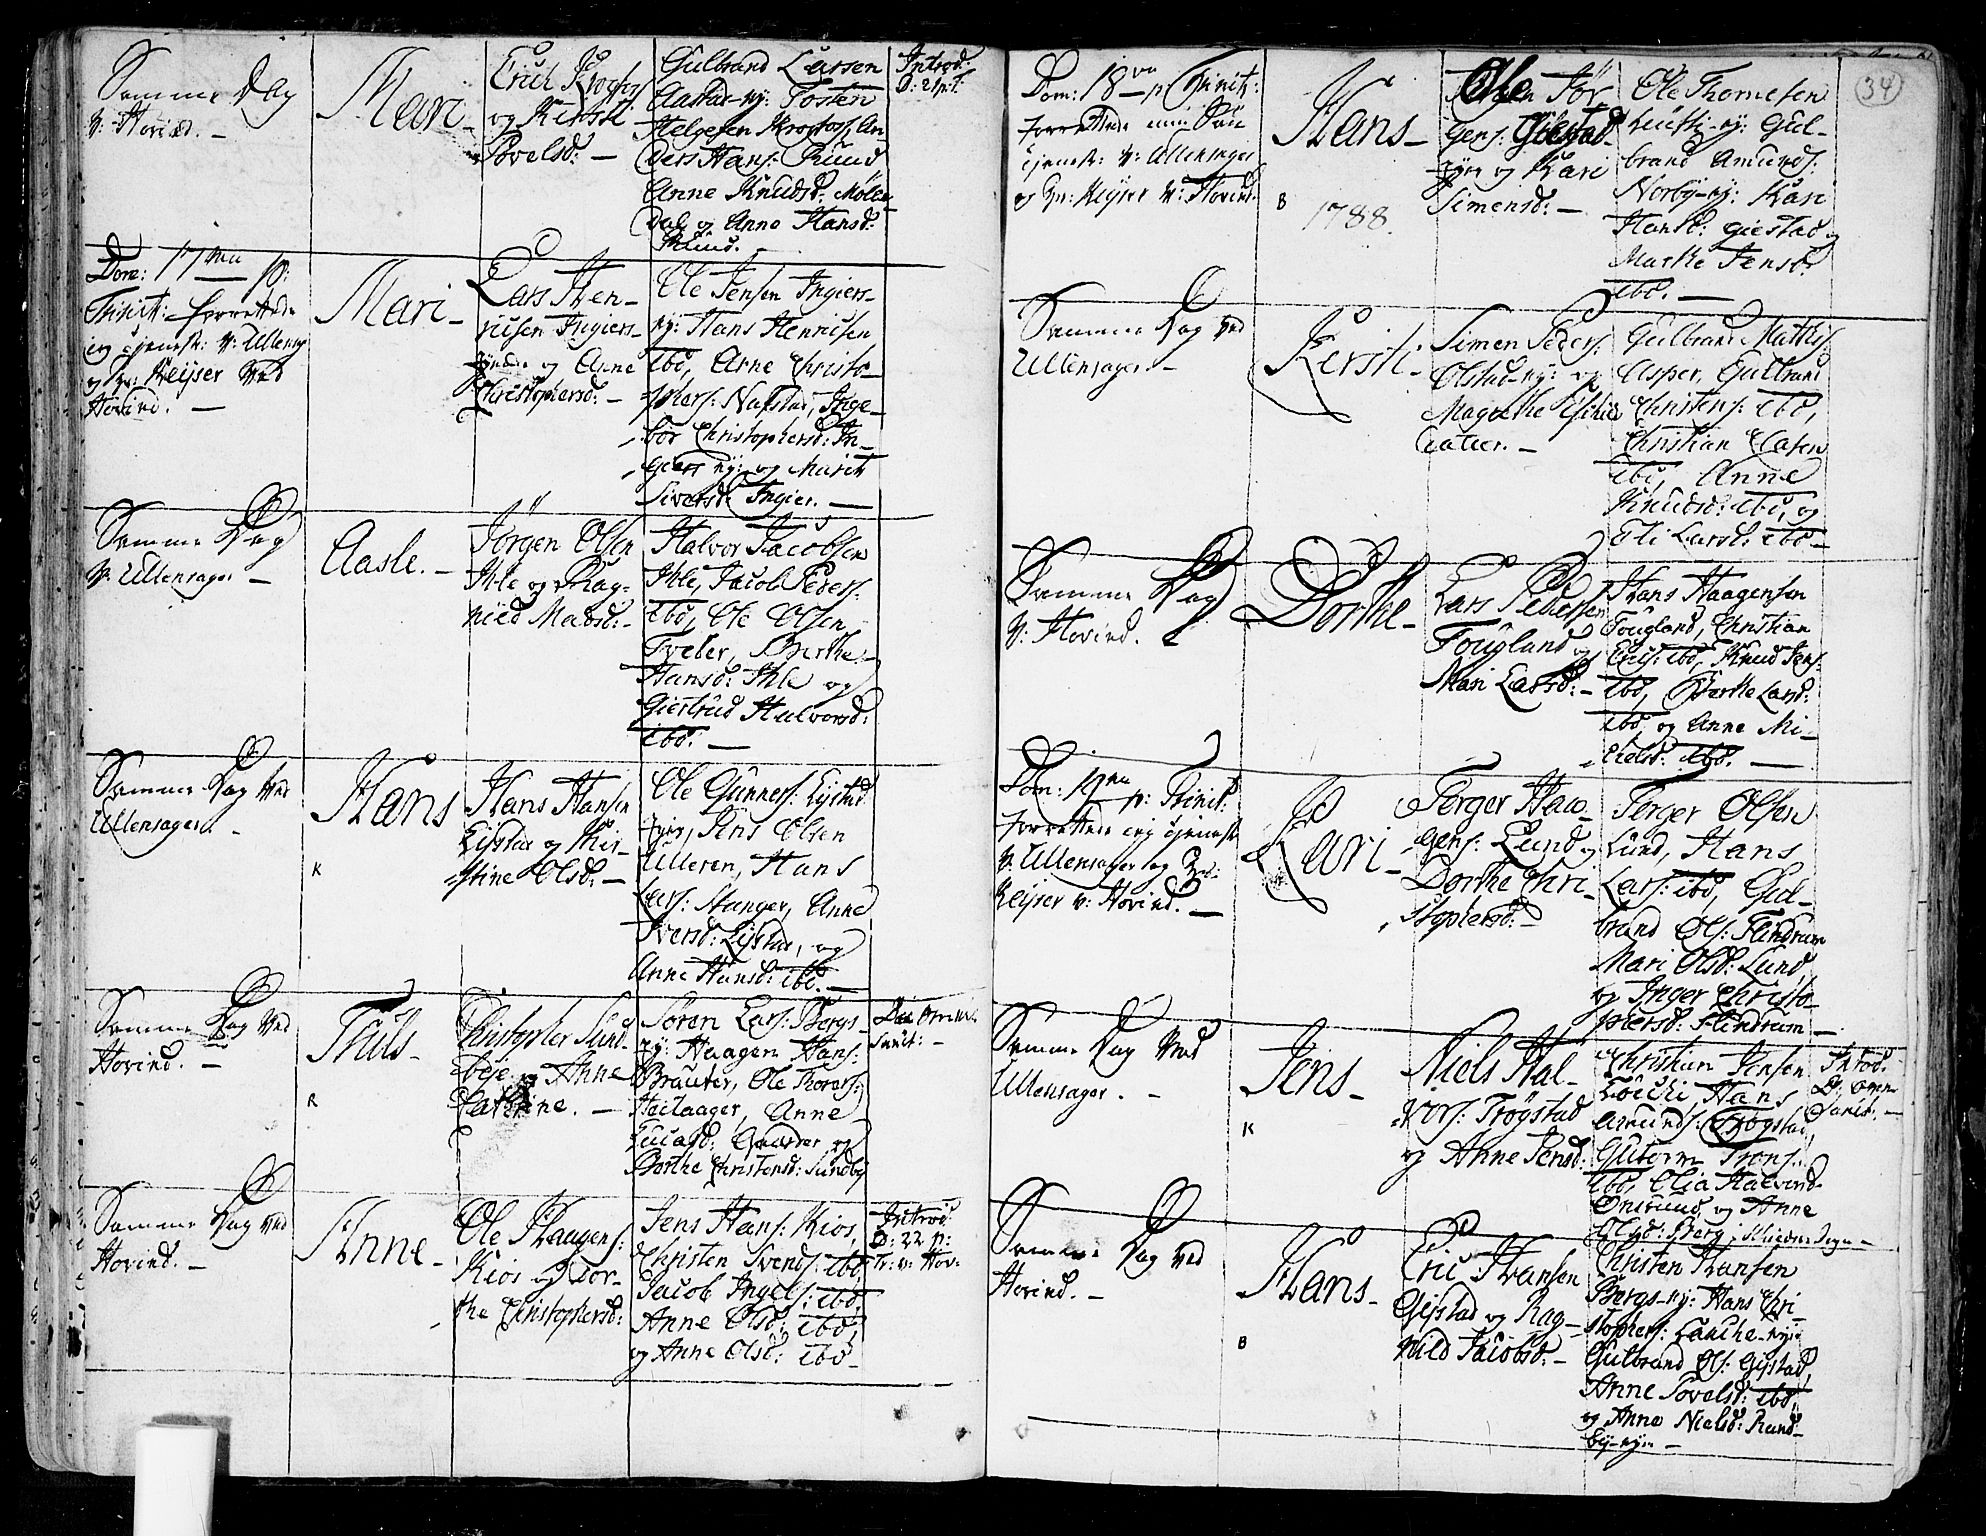 Samme Dag
v: Hovind. -
Mari -
Erich
og Kersti
Povelsd: -
Gulbrand Larsen
Aastad-ey: Tosten
Helgesen Krogtof, An
ders Hans: Ruud
Anne Knudsd: Mølen
Dal og Anne Hansd:
Ruud.
Introd:
D: 21 p: T.
Dom: 17 ma p:
Trinit: forrettede
ieg tjenest: v: Ullens
og Hr: Keijser ved
Hovind. -
Mari -
Lars Hen-
richsen Ingiers-
og Anne
Christophersd: -
Ole Jensen Ingiers-
ey: Hans Henrichsen
ibd, Arne Christo-
phers: Nafstad, Inge-
bor Christophersd: In-
giers ey: og Marit
Siversd: Ingier. -
Samme Dag
v: Ullensager -
Aasle. -
Jörgen Olsen
Ihle og Rag-
nild Madsd: -
Halvor Jacobsen
Ihle, Jacob Peders:
ibd, Ole Olsen
Tveter, Berthe
Hansd: Ihle og
Giertrud Halvorsd:
ibd: -
Samme Dag ved
Ullensager. -
Hans
K
Hans Hansen
Lijstad og Kir-
stine Olsd: -
Ole Gunners: Lijstad
eyer, Jens Olsen
Ulleren, Hans
Lars: Hanger, Anne
Iversd: Lijstad, og
Anne Hansd: ibd. -
Samme Dag ved
Hovind. -
Truls -
R
Christopher Sund-
beye og Anne
Cathrine. -
Sören Lars: Bergs-
ey: Haagen Hans:
Brauter, Ole Thores:
Heilaager, Anne
og
Dorthe Christensd: Sundby
Die omn:
Sanct: -
Samme Dag ved
Hovind. -
Anne -
Ole Haagens:
Kios og Dor-
the Christophersd:
Jens Hans: Kios,
Christen Svends: ibd,
Jacob Ingel: ibd,
Anne Olsd: ibd,
og Anne Olsd: ibd -
Introd:
D: 22 p:
Tr: v: Hov:
34
Dom: 18 va p Trinit:
forrettede min Søn
tjenest: v: Ullensager
og Hr: Keijser v: Hovind.
Hans -
B
1788.
Ole Jör
gens: Gilestad-
eyer og Kari
Simensd: -
Ole Thornesen
ey: Gul-
brand Amunds:
Norbÿ-ey: Kari
Hansd: Giestad og
Marthe Jensd:
ibd. -
Samme Dag ved
Ullensager. -
Kersti -
Simen Peders:
Olstad-ey: og
Magrethe
Gulbrand Mathis:
Asper, Gulbrand
Christens: ibd,
Christian Clasen
ibd, Anne
Knudsd: ibd, og
Eli Larsd: ibd -
Samme Dag
v: Hovind.
Dorthe -
Lars Pedersen
Fougland og
Mari Larsd: -
Hans Haagensen
Fougland, Christian
Erics: ibd, Knud Jens:
ibd, Berthe Larsd:
ibd, og Anne Mi-
chelsd: ibd. -
Dom: 19 ma p: Trinit:
forrettede ieg tjenest
v: Ullensager og Hr:
Keijser v: Hovind. -
Kari -
Torger Haa-
gens: Lund og
Dorthe Chri
stophersd: -
Torger Olsen
Lund, Hans
Lars: ibd, Gul-
brand Ols: Flindrum
Mari Olsd: Lund,
og Inger Christo-
phersd: Flindrum -
Samme Dag ved
Ullensager. -
Jens -
K
Niels Hal-
vors: Trögstad
og Anne Jensd:
Christian Jensen
Löichi, Hans
Amunds: Trögstad,
Guttorm Trons:
ibd, Olia Halvord:
Onsrud, og Anne
Olsd: Berg i Skiedsmoe Sogn -
Introd:
D: omn:
Sanct: -
Samme Dag ved
Hovind. -
Hans -
B
Eric Hansen
Gijstad og Rag-
nild Jacobsd: -
Christen Hansen
Bergs-ey: Hans Chri-
stophers: Lauche-eye
Gulbrand Ols: Gijstad,
Anne Povelsd: ibd,
og Anne Nielsd: Rund-
by-eye -